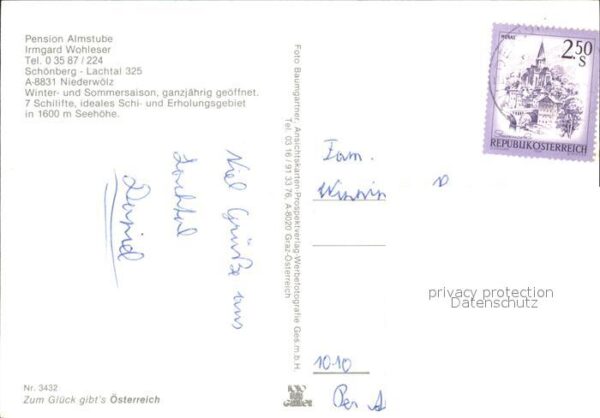 Pension Almstube
Irmgard Wohleser
Tel. 0 35 87 / 224
Schönberg - Lachtal 325
A-8831 Niederwölz
Winter- und Sommersaison, ganzjährig geöffnet.
7 Schilifte, ideales Schi- und Erholungsgebiet
in 1600 m Seehöhe.
Viel Grüße aus
Lachtal
David
Nr. 3432
Zum Glück gibt's Österreich
Foto Baumgartner, Ansichtskarten-Prospektverlag-Werbefotografie Ges.m.b.H.
Tel. 03 16 / 91 33 76, A-8020 Graz-Österreich
MURAU
2.50
S
REPUBLIK ÖSTERREICH
Fam.
privacy protection
Datenschutz
1010
Per A